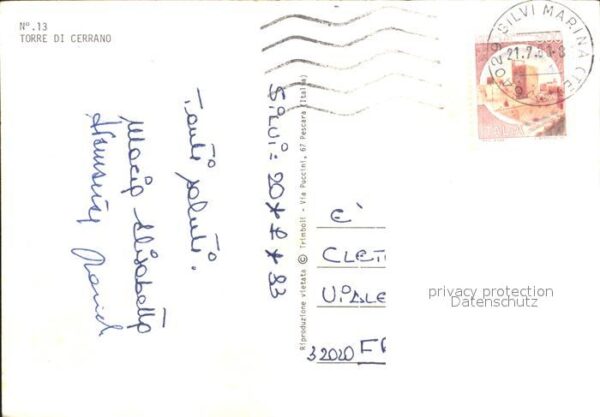 N°.13
TORRE DI CERRANO
64029 SILVI MARINA (TE
21.7.
ITALIA
Silvi = 20 * 7 * 83
Tanti saluti.
Maria Elisabetta
Riproduzione vietata © Trimboli - Via Puccini, 67 Pescara (Italia)
E'
CLET
VIALE
32020 F
privacy protection
Datenschutz